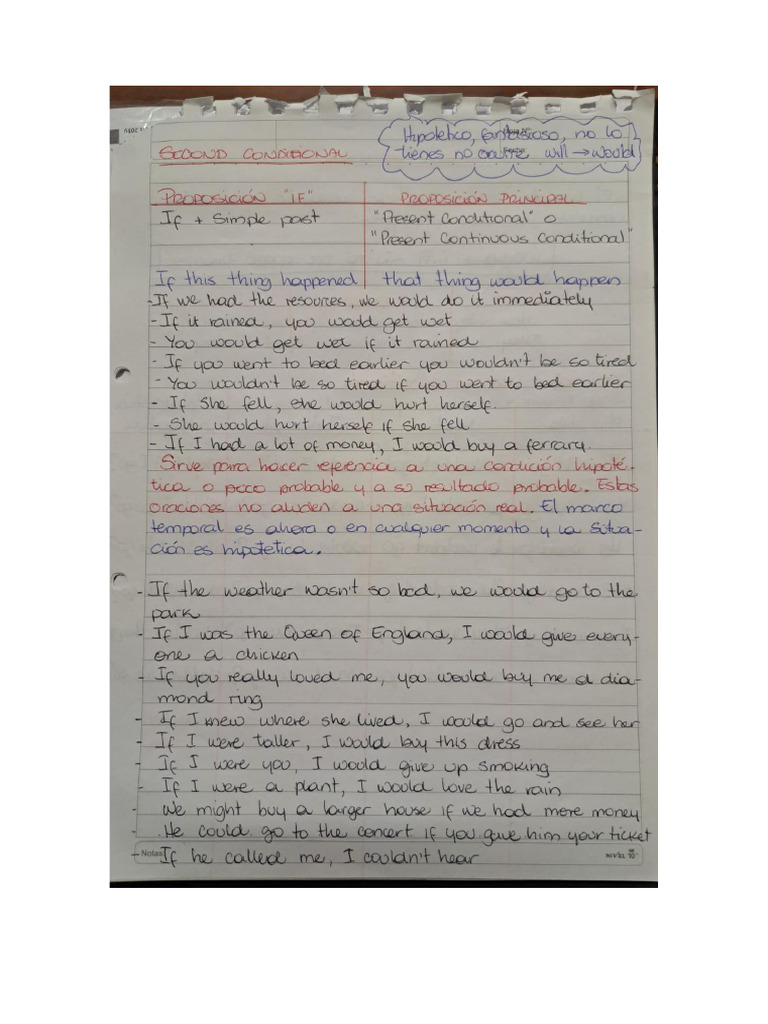 Hipotetico, fantasioso, no lo
tienes no ocurre will → would
SECOND CONDITIONAL
PROPOSICIÓN "IF" PROPOSICIÓN PRINCIPAL
If + Simple past "Present Conditional" o
"Present Continuous Conditional"
If this thing happened that thing would happen
-If we had the resources, we would do it immediately
- If it rained, you would get wet
- You would get wet if it rained
- If you went to bed earlier you wouldn't be so tired
- You wouldn't be so tired if you went to bed earlier
- If she fell, she would hurt herself.
- She would hurt herself if she fell
- If I had a lot of money, I would buy a ferrary.
Sirve para hacer referencia a una condición hipoté-
tica o poco probable y a su resultado probable. Estas
oraciones no aluden a una situación real. El marco
temporal es ahora o en cualquier momento y la situa-
ción es hipotetica.
- If the weather wasn't so bad, we would go to the
park
- If I was the Queen of England, I would give every-
one a chicken
- If you really loved me, you would buy me a dia-
mond ring
- If I knew where she lived, I would go and see her
- If I were taller, I would buy this dress
- If I were you, I would give up smoking
- If I were a plant, I would love the rain
- We might buy a larger house if we had more money
- He could go to the concert if you gave him your ticket
- Notas If he called me, I couldn't hear